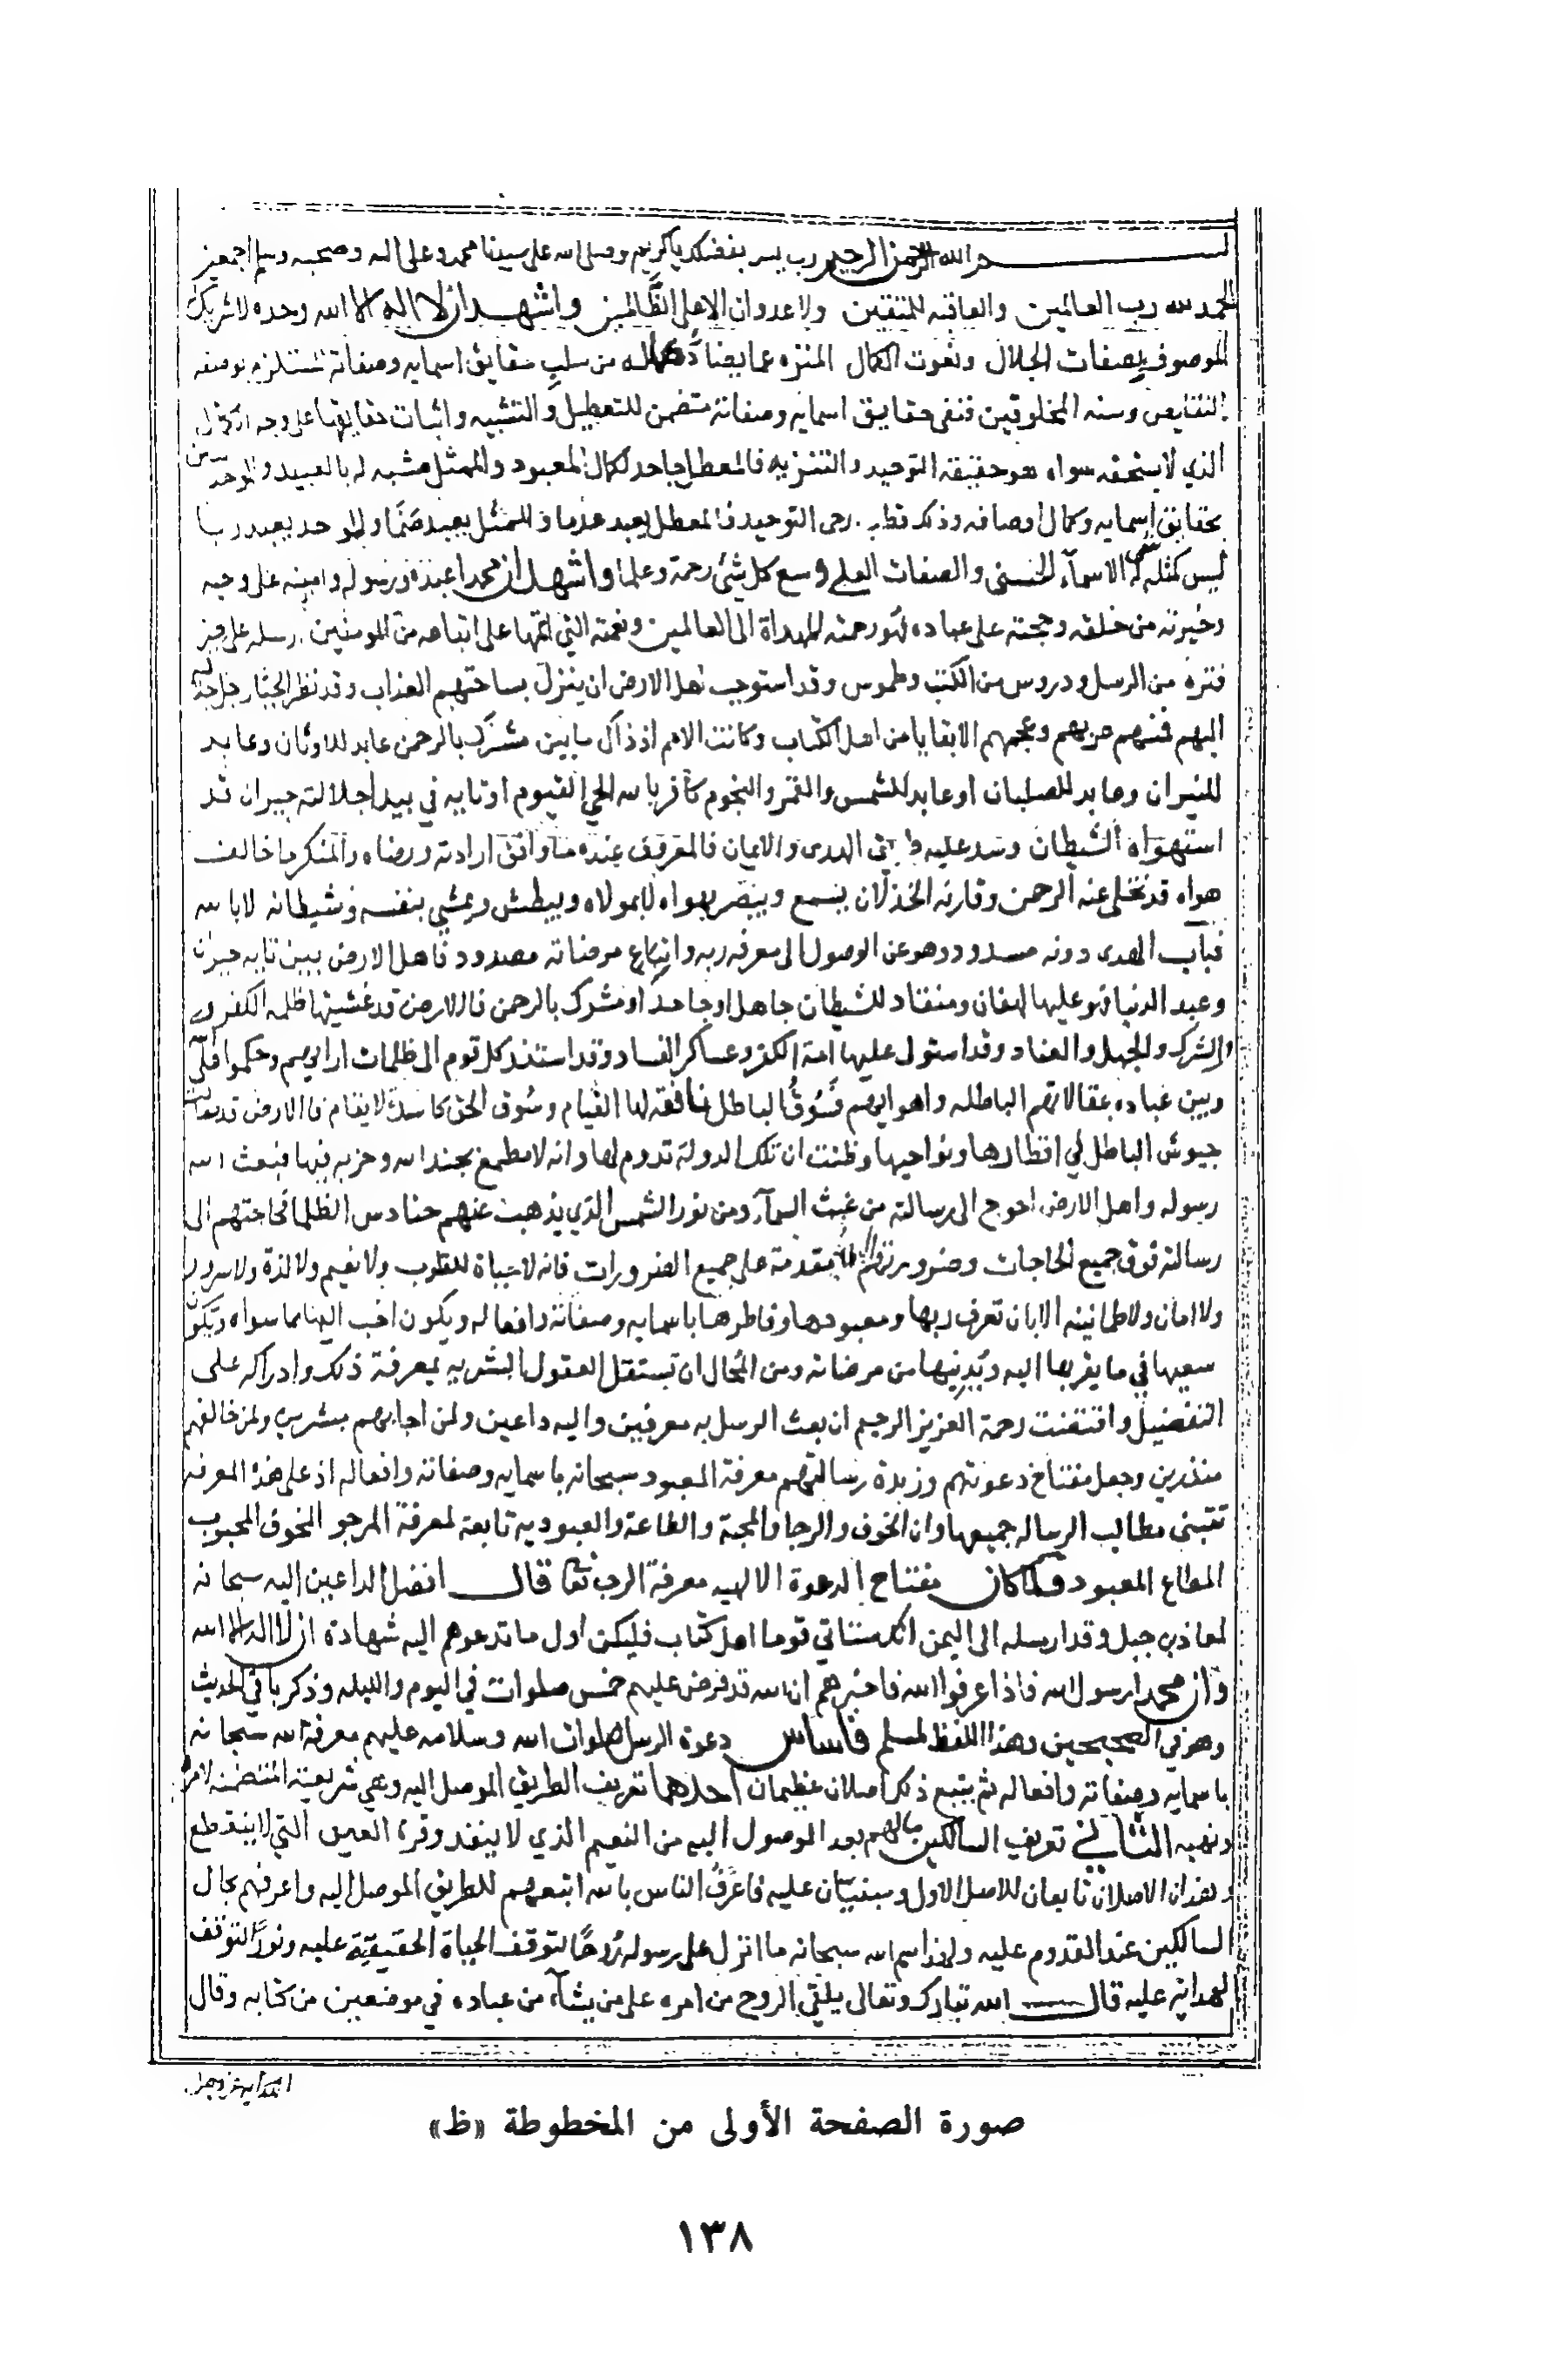 بسم الله الرحمن الرحيم رب يسر بفضلك يا كريم وصلى الله على سيدنا محمد وعلى اله وصحبه وسلم اجمعين
الحمد لله رب العالمين والعاقبه للمتقين ولا عدوان الا على الظالمين واشهد ان لا اله الا الله وحده لا شريك
الموصوف بصفات الجلال ونعوت الكمال المنزه عما يضاد كماله من سلب حقايق اسمايه وصفاته المستلزم لوصفه
بالنقايص وشبه المخلوقين فنفى حقايق اسمايه وصفاته متضمن للتعطيل والتشبيه واثبات حقايقها على وجه الكمال
الذي لا يستحقه سواه هو حقيقة التوحيد والتنزيه فالمعطل جاحد لكمال المعبود والممثل مشبه له بالعبيد والموحد مبين
بحقايق اسمايه وكمال اوصافه وذلك قطب رحى التوحيد فالمعطل يعبد عدما والممثل يعبد صنما والموحد يعبد ربا
ليس كمثله شي له الاسمآء الحسنى والصفات العلى وسع كل شئ رحمة وعلما واشهد ان محمدا عبده ورسوله وامينه على وحيه
وخيرته من خلقه وحجته على عباده فهو رحمته المهداة الى العالمين ونعمته التي اتمها على اتباعه من المومنين ارسله على حين
فترة من الرسل ودروس من الكتب وطموس وقد استوجب اهل الارض ان ينزل بساحتهم العذاب وقد نظر الجبار جل جلاله
اليهم فمقتهم عربهم وعجمهم الا بقايا من اهل الكتاب وكانت الامم اذ ذاك ما بين مشرك بالرحمن عابد للاوثان وعابد
للنيران وعابد للصلبان او عابد للشمس والقمر والنجوم كافر بالله الحي القيوم او تايه في بيدا جلالته حيران قد
استهواه الشيطان وسد عليه طريق الهدى والايمان فالمعروف عنده ما وافق ارادته ورضاه والمنكر ما خالف
هواه قد تخلى عنه الرحمن وقارنه الخذلان يسمع ويبصر بهواه لا بمولاه ويبطش ويمشي بنفسه وشيطانه لا بالله
فباب الهدى دونه مسدود وهو عن الوصول الى معرفه ربه واتباع مرضاته مصدود فاهل الارض بين تايه حيران
وعبد الدنيا فهو عليها لهفان ومنقاد للشيطان جاهل او جاحد او مشرك بالرحمن فالارض قد غشيتها ظلمه الكفر
والشرك والجهل والعناد وقد استولى عليها ائمة الكفر وعساكر الفساد وقد استند كل قوم الى ظلمات ارايهم وحكموا على الله
وبين عباده بمقالاتهم الباطله واهوايهم فسوق الباطل نافقه لها القيام وسوق الحق كاسدة لا يقام فالارض قد صالت
جيوش الباطل في اقطارها ونواحيها وظنت ان تلك الدولة تدوم لها وانه لا مطمع لجند الله وحزبه فيها فبعث الله
رسوله واهل الارض احوج الى رسالته من غيث السمآء ومن نور الشمس الذي يذهب عنهم حنادس الظلما فحاجتهم الى
رسالته فوق جميع الحاجات وضرورتهم اليها مقدمة على جميع الضرورات فانه لا حياة للقلوب ولا نعيم ولا لذة ولا سرور
ولا امان ولا طمانينه الا بان تعرف ربها ومعبودها وفاطرها باسمايه وصفاته وافعاله ويكون احب اليها مما سواه ويكون
سعيها في ما يقربها اليه ويدنيها من مرضاته ومن المحال ان تستقل العقول البشريه بمعرفة ذلك وادراكه على
التفضيل واقتضت رحمة العزيز الرحيم ان بعث الرسل به معرفين واليه داعين ولمن اجابهم مبشرين ولمن خالفهم
منذرين وجعل مفتاح دعوتهم وزبدة رسالتهم معرفة المعبود سبحانه باسمايه وصفاته وافعاله اذ على هذه المعرفه
تنبني مطالب الرساله جميعها وان الخوف والرجا والمحبة والطاعة والعبوديه تابعة لمعرفة المرجو المخوف المحبوب
المطاع المعبود ولما كان مفتاح الدعوة الالهيه معرفة الرب تعالى قال افضل الداعين اليه سبحانه
لمعاذ بن جبل وقد ارسله الى اليمن انك ستاتي قوما اهل كتاب فليكن اول ما تدعوهم اليه شهادة ان لا اله الا الله
وان محمدا رسول الله فاذا عرفوا الله فاخبرهم ان الله قد فرض عليهم خمس صلوات في اليوم والليله وذكر باقي الحديث
وهو في الصحيحين وهذا اللفظ لمسلم فاساس دعوة الرسل صلوات الله وسلامه عليهم معرفة الله سبحانه
باسمايه وصفاته وافعاله ثم يتبع ذلك اصلان عظيمان احدهما تعريف الطريق الموصل اليه وهي شريعته المتضمنه لامره
ونهيه الثاني تعريف السالكين مالهم بعد الوصول اليه من النعيم الذي لا ينفد وقرة العين التي لا ينقطع
وهذان الاصلان تابعان للاصل الاول ومبنيان عليه فاعرف الناس بالله اتبعهم للطريق الموصل اليه واعرفهم بحال
السالكين عند القدوم عليه ولهذا سمى الله سبحانه ما انزل على رسوله روحا لتوقف الحياة الحقيقية عليه ونورا لتوقف
الهداية عليه قال الله تبارك وتعالى يلقي الروح من امره على من يشآء من عباده في موضعين من كتابه وقال
صورة الصفحة الأولى من المخطوطة «ظ»
١٣٨